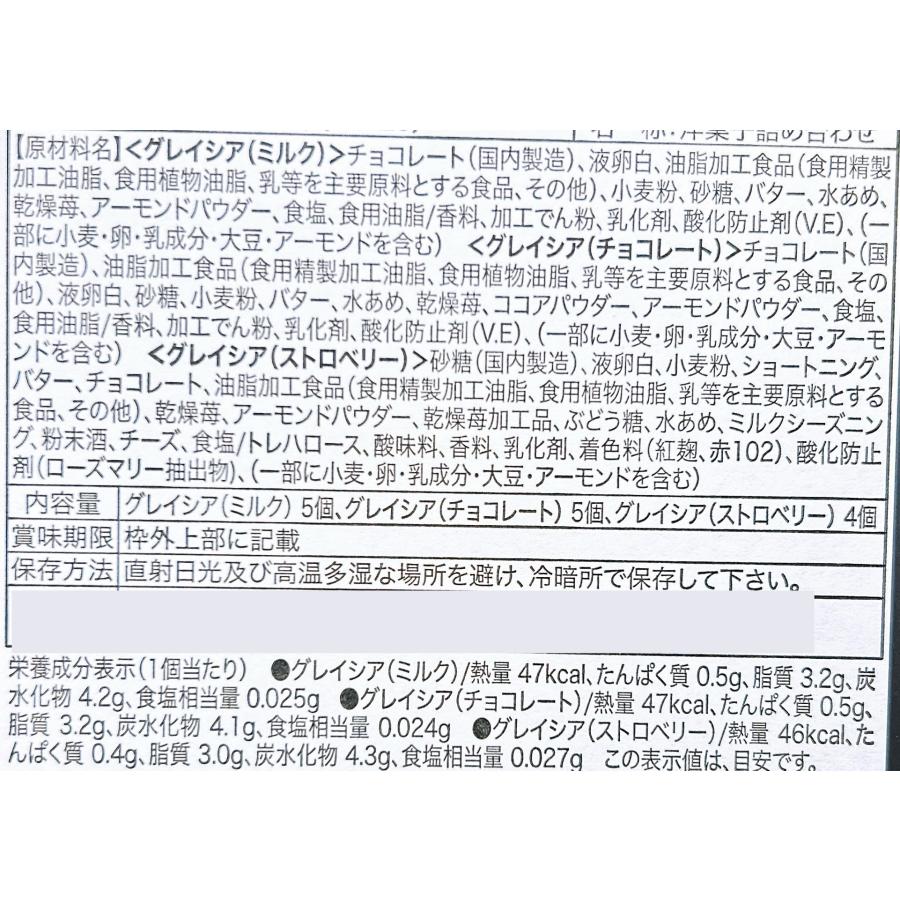 名 称:洋菓子詰め合わせ
【原材料名】<グレイシア(ミルク)>チョコレート(国内製造)、液卵白、油脂加工食品(食用精製
加工油脂、食用植物油脂、乳等を主要原料とする食品、その他)、小麦粉、砂糖、バター、水あめ、
乾燥苺、アーモンドパウダー、食塩、食用油脂/香料、加工でん粉、乳化剤、酸化防止剤(V.E)、(一
部に小麦・卵・乳成分・大豆・アーモンドを含む) <グレイシア(チョコレート)>チョコレート(国
内製造)、油脂加工食品(食用精製加工油脂、食用植物油脂、乳等を主要原料とする食品、その
他)、液卵白、砂糖、小麦粉、バター、水あめ、乾燥苺、ココアパウダー、アーモンドパウダー、食塩、
食用油脂/香料、加工でん粉、乳化剤、酸化防止剤(V.E)、(一部に小麦・卵・乳成分・大豆・アーモ
ンドを含む) <グレイシア(ストロベリー)>砂糖(国内製造)、液卵白、小麦粉、ショートニング、
バター、チョコレート、油脂加工食品(食用精製加工油脂、食用植物油脂、乳等を主要原料とする
食品、その他)、乾燥苺、アーモンドパウダー、乾燥苺加工品、ぶどう糖、水あめ、ミルクシーズニン
グ、粉末酒、チーズ、食塩/トレハロース、酸味料、香料、乳化剤、着色料(紅麹、赤102)、酸化防止
剤(ローズマリー抽出物)、(一部に小麦・卵・乳成分・大豆・アーモンドを含む)
内容量 グレイシア(ミルク) 5個、グレイシア(チョコレート) 5個、グレイシア(ストロベリー) 4個
賞味期限 枠外上部に記載
保存方法 直射日光及び高温多湿な場所を避け、冷暗所で保存して下さい。
栄養成分表示(1個当たり) ●グレイシア(ミルク)/熱量 47kcal、たんぱく質 0.5g、脂質 3.2g、炭
水化物 4.2g、食塩相当量 0.025g ●グレイシア(チョコレート)/熱量 47kcal、たんぱく質 0.5g、
脂質 3.2g、炭水化物 4.1g、食塩相当量 0.024g ●グレイシア(ストロベリー)/熱量 46kcal、た
んぱく質 0.4g、脂質 3.0g、炭水化物 4.3g、食塩相当量 0.027g この表示値は、目安です。